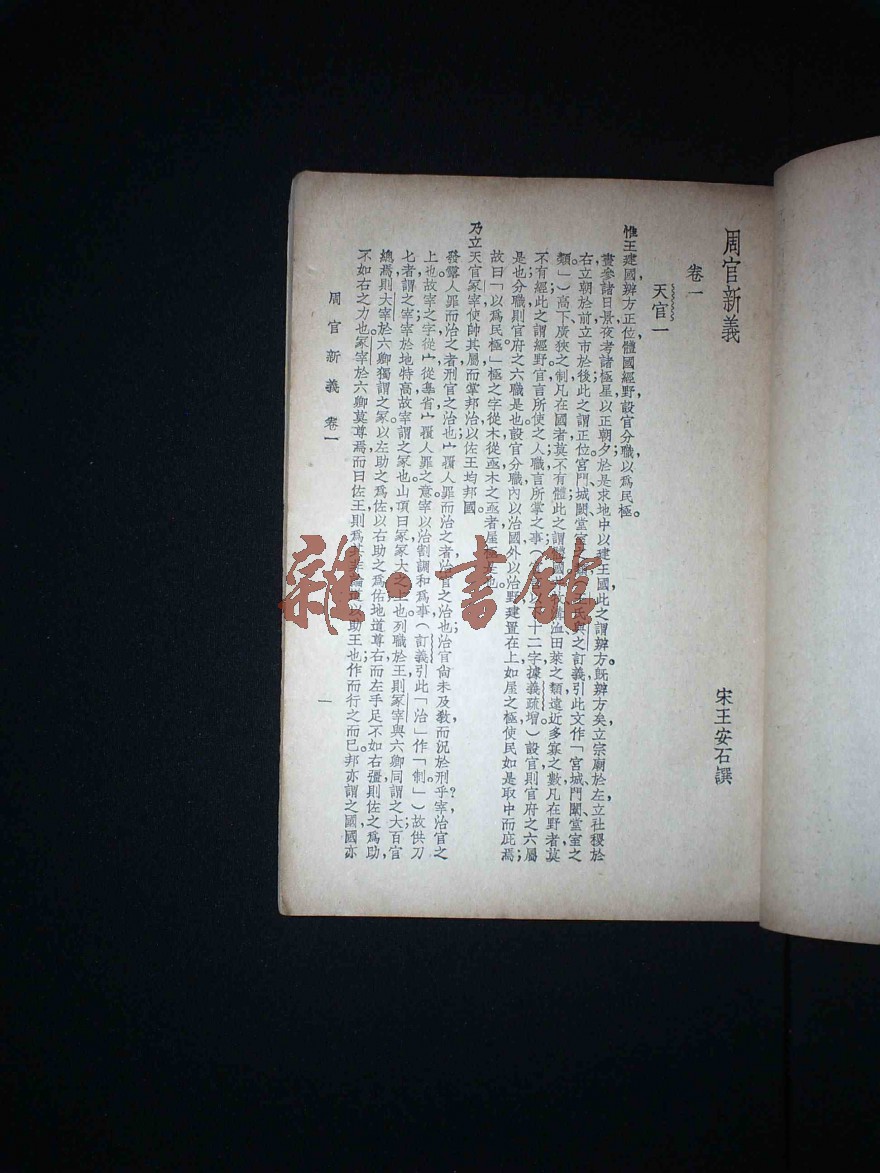 周官新義
宋王安石譔
卷一
天官一
惟王建國，辨方正位，體國經野，設官分職，以爲民極。
晝參諸日景，夜考諸極星，以正朝夕，於是求地中以建王國，此之謂辨方。旣辨方矣，立宗廟於左，立社稷於
右，立朝於前，立市於後，此之謂正位。宮門、城闕、堂室、之訂義引此文作「宮城、門闈、堂室之
類」）高下廣狹之制，凡在國者，莫不有體，此之謂體國；洫田萊之類，遠近多寡之數，凡在野者，莫
不有經，此之謂經野。官言所使之人，職言所掌之事（十二字據義疏增）。設官則官府之六屬
是也，分職則官府之六職是也。設官分職，內以治國，外以治野，建置在上，如屋之極，使民如是取中而庇焉；
故曰「以爲民極」。極之字從木從亟，木之亟者，屋極是也。
乃立天官冢宰，使帥其屬而掌邦治，以佐王均邦國。
發露人罪而治之者，刑官之治也；宀覆人罪而治之者，治官之治也；治官尙未及敎，而況於刑乎？宰，治官之
上也，故宰之字，從宀從辠省，宀覆人罪之意。宰以治割調和爲事（訂義引此「治」作「制」），故供刀
匕者謂之宰；宰於地特高，故宰謂之冢也；山頂曰冢，冢大之上也。列職於王，則冢宰與六卿同謂之大；百官
總焉，則大宰於六卿獨謂之冢。以左助之爲佐，以右助之爲佑；地道尊右而左，手足不如右彊，則佐之爲助，
不如右之力也。冢宰於六卿莫尊焉，而曰佐王，則爲其以助王也，作而行之而已。邦亦謂之國，國亦
周官新義　卷一
一
雜·書館